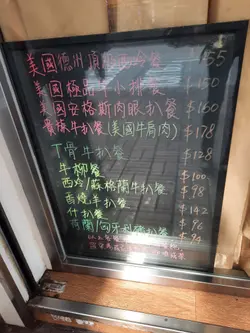 美國德州頂級西冷餐 $155
美國極品牛小排餐 $150
美國安格斯肉眼扒餐 $160
貴族牛扒餐(美國牛肩肉) $178
丁骨牛扒餐 $128
牛柳餐 $100
西冷/蘇格蘭牛扒餐 $98
香燒羊扒餐 $142
什扒餐 $96
荷蘭/匈牙利豬扒餐 $94